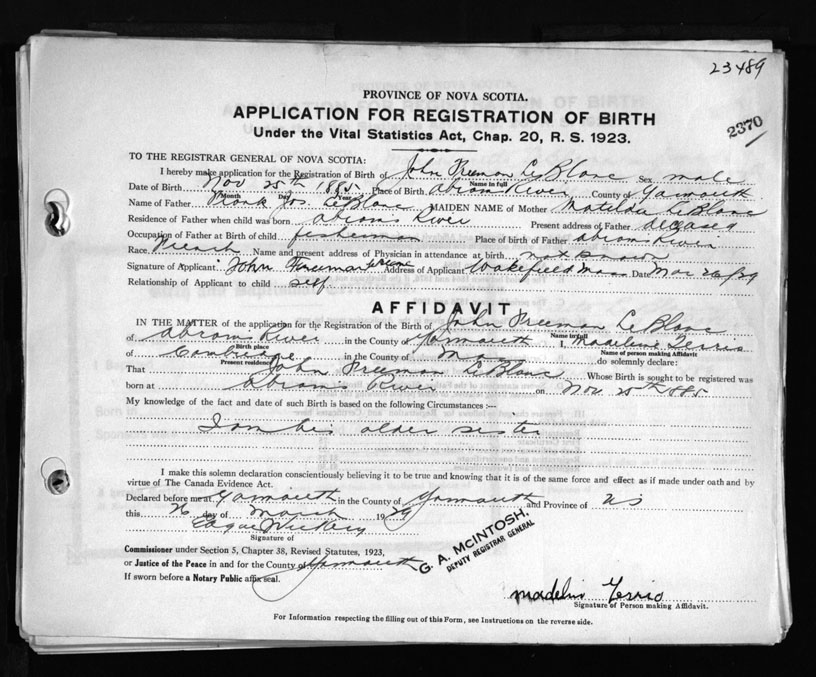 23489
2370
PROVINCE OF NOVA SCOTIA.
APPLICATION FOR REGISTRATION OF BIRTH
Under the Vital Statistics Act, Chap. 20, R. S. 1923.
TO THE REGISTRAR GENERAL OF NOVA SCOTIA:
I hereby make application for the Registration of Birth of John Freeman LeBlanc Sex male
Name in full
Date of Birth Nov 25th 1885 Place of Birth Abram River County of Yarmouth
Month Day Year
Name of Father Frank Jos. LeBlanc MAIDEN NAME of Mother Matilda LeBlanc
Residence of Father when child was born Abrams River Present address of Father deceased
Occupation of Father at Birth of child fisherman Place of birth of Father Abrams River
Race French Name and present address of Physician in attendance at birth not known
Signature of Applicant John Freeman Address of Applicant Wakefield Mass Date Mar 26/29
Relationship of Applicant to child self
AFFIDAVIT
IN THE MATTER of the application for the Registration of the Birth of John Freeman LeBlanc
Name in full
of Abram River in the County of Yarmouth I, Madeline Terrio
Birth place Name of person making Affidavit
of Cambridge in the County of Mass do solemnly declare:
Present residence
That John Freeman LeBlanc Whose Birth is sought to be registered was
born at Abrams River on Nov. 25th 1885
My knowledge of the fact and date of such Birth is based on the following Circumstances :—
I am his older sister
I make this solemn declaration conscientiously believing it to be true and knowing that it is of the same force and effect as if made under oath and by
virtue of The Canada Evidence Act.
Declared before me at Yarmouth in the County of Yarmouth and Province of NS
this 26 day of March 1929
Signature of
Commissioner under Section 5, Chapter 38, Revised Statutes, 1923,
or Justice of the Peace in and for the County of Yarmouth
If sworn before a Notary Public affix seal.
G. A. McINTOSH,
DEPUTY REGISTRAR GENERAL
Madelin Terrio
Signature of Person making Affidavit.
For Information respecting the filling out of this Form, see Instructions on the reverse side.